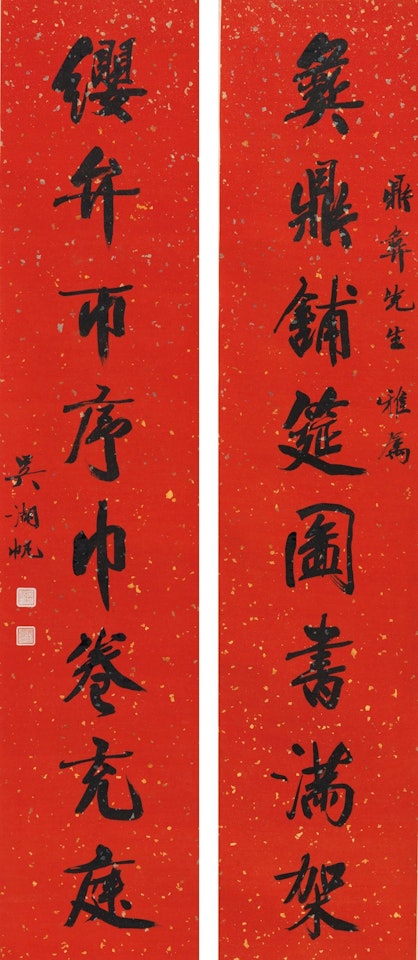 彝鼎舖筵圖書滿架
鼎彝先生雅属
纓弁帀序巾卷充庭
吳湖帆